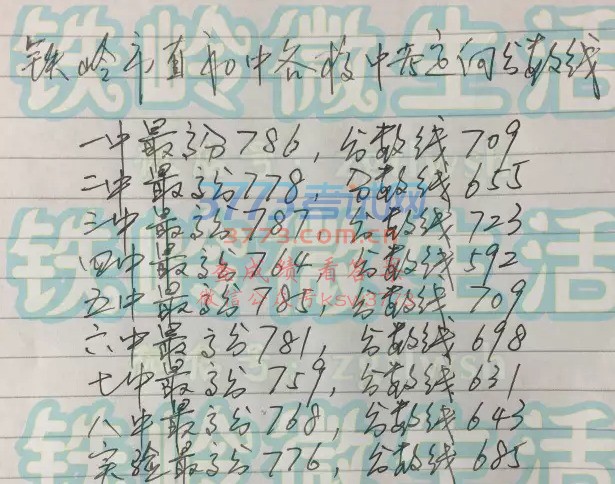 铁岭市直初中各校中考定向分数线
一中最高分786，分数线709
二中最高分778，分数线655
三中最高分787，分数线723
四中最高分764，分数线592
五中最高分785，分数线709
六中最高分781，分数线698
七中最高分759，分数线631
八中最高分768，分数线643
实验最高分776，分数线685
铁岭微生活
3773考试网
3773.com.cn
查成绩 看答案
铁岭微生活
铁岭微生活